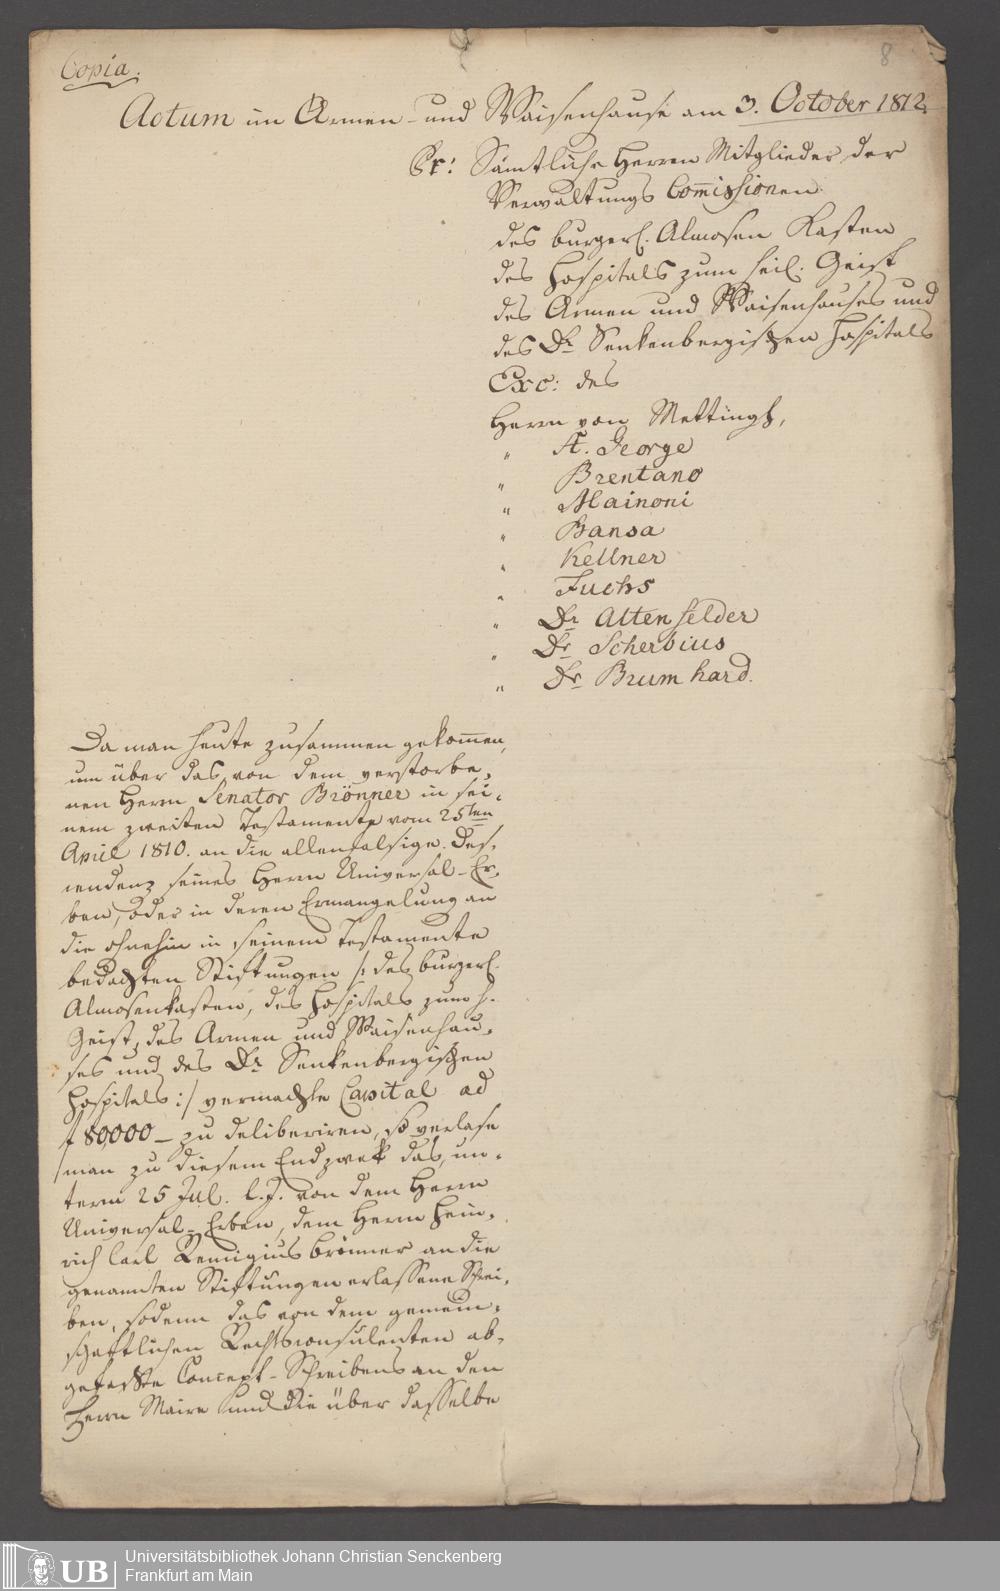 8
Copia.
Actum im Armen- und Waisenhause am 3. October 1812.
Pr: Sämtliche Herren Mitglieder der
Verwaltungs Com̄issionen
des burgerl. Almosen Kasten
des Hospitals zum heil. Geist
des Armen und Waisenhauses und
des Dr Senkenbergischen Hospitals
Exc: des
Herrn von Mettingh,
" A. George
" Brentano
" Mainoni
" Bansa
" Kellner
" Fuchs
" Dr Altenfelder
" Dr Scherbius
" Dr Brumhard.
Da man heute zusammen gekom̄en,
um über das von dem verstorbe-
nen Herrn Senator Brönner in sei-
nem zweiten Testamente vom 25ten
April 1810. an die allenfalsige Des-
cendenz seines Herrn Universal-Er-
ben, oder in deren Ermangelung an
die ohnehin in seinem Testamente
bedachten Stiftungen /: des burgerl.
Almosenkasten, des Hospitals zum h.
Geist, des Armen und Waisenhau-
ses und des Dr Senkenbergischen
Hospitals :/ vermachte Capital ad
f 80,000 – zu deliberiren, so verlase
man zu diesem Endzwek das, un-
term 25 Jul. l. J. von dem Herrn
Universal-Erben, dem Herrn Hein-
rich Carl Remigius Brönner an die
genannten Stiftungen erlassene Schrei-
ben, sodenn das von dem gemein-
schaftlichen Rechtsconsulenten ab-
gefaßte Concept-Schreibens an den
Herrn Maire und die über dasselbe
Universitätsbibliothek Johann Christian Senckenberg
Frankfurt am Main
UB